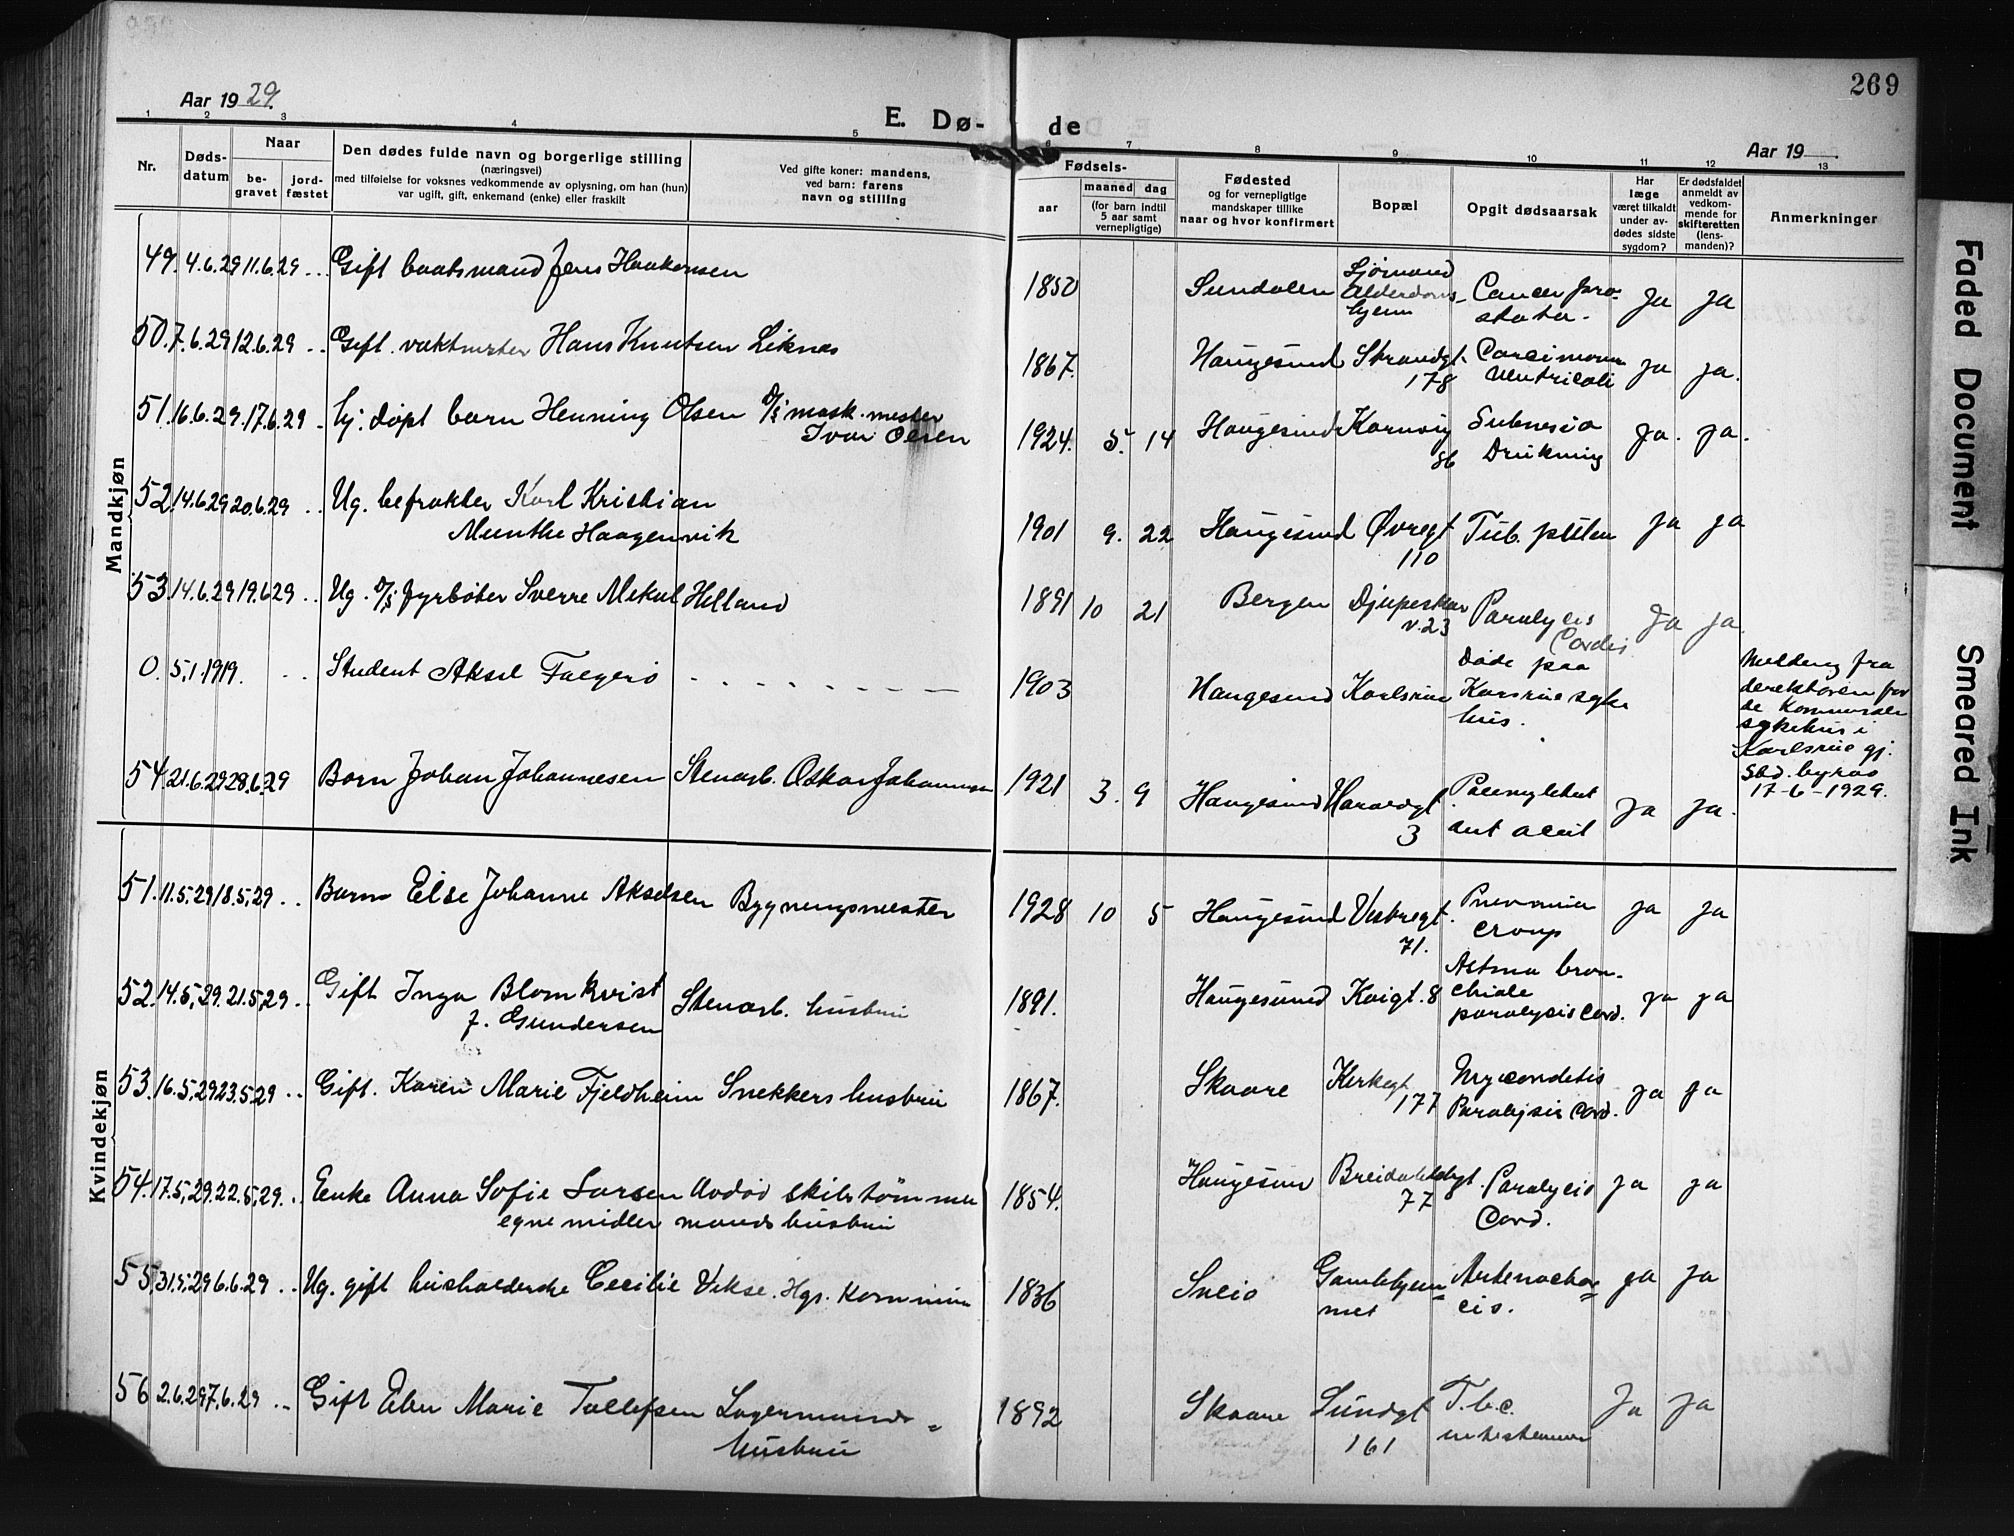 269
Aar 1929.
E. Dø- de
Aar 19
1 2 3 4 5 6 7 8 9 10 11 12 13
Nr.
Døds-
datum
Naar
be-
gravet
jord-
fæstet
Den dødes fulde navn og borgerlige stilling
(næringsvei)
med tilføielse for voksnes vedkommende av oplysning, om han (hun)
var ugift, gift, enkemand (enke) eller fraskilt
Ved gifte koner: mandens,
ved barn: farens
navn og stilling
Fødsels-
aar
maaned dag
(for barn indtil
5 aar samt
vernepligtige)
Fødested
og for vernepligtige
mandskaper tillike
naar og hvor konfirmert
Bopæl
Opgit dødsaarsak
Har
læge
været tilkaldt
under av-
dødes sidste
sygdom?
Er dødsfaldet
anmeldt av
vedkom-
mende for
skifteretten
(lens-
manden)?
Anmerkninger
Mandkjøn
49. 4.6.29 11.6.29 Gift baatsmand Jens Haakonsen 1850 Sundalen Sjømand Cancer pro- Ja Ja
Alderdoms-
hjem
50. 7.6.29 12.6.29 Gift. vaktmester Hans Knutsen Liknes 1867. Haugesund Strandgt. Ja Ja.
178 Ventricoli
51. 16.6.29. 17.6.29 døpt barn Henning Olsen mask. mester 1924. 5. 14 Haugesund Ja. Ja.
Ivar Olsen 86 Drukning
52. 14.6.29 20.6.29 Ug. befrakter Karl Kristian
Munthe Haagenvik 1901 9. 22 Haugesund Øvregt Tub. Ja Ja
110
53. 14.6.29 19.6.29 Ug. fyrbøter Sverre Mikal Helland 1891 10 21 Bergen Djupeskar Paralysis Ja Ja.
v. 23 Cordis
0. 5.1.1919. Student Aksel Falgerø 1903 Haugesund Karlsrue Døde paa
Karsrue syke
hus.
Melding fra
derektøren for
de Kommunale
sykehus i
Karlsrue gj.
byraa
17-6-1929.
54. 21.6.29 28.6.29 Barn Johan Johannesen Stenarb. Oskar Johannesen 1921 3. 9 Haugesund Haraldgt. Ja Ja.
3 acut
Kvindekjøn
51. 11.5.29 18.5.29 Barn Else Johanne Akselsen Bygningsmester 1928 10 5 Haugesund Vestregt. Pnevmonia Ja Ja
71. croup
52. 14.5.29. 21.5.29 Gift Inga Blomkvist Stenarb. hustru 1891. Haugesund Kaigt. 8 Astma bron- Ja Ja
f. Gundersen chiale
paralysis Cord.
53. 16.5.29 23.5.29 Gift. Karen Marie Fjeldheim Snekkers hustru 1867. Skaare Kirkegt Ja Ja
177 Paralysis Cord.
54. 17.5.29. 22.5.29. Enke Anna Sofie Larsen Avdød skibstømmer 1854. Haugesun Paralysis Ja Ja
egne midler mands hustru 77 Cord.
55. 31.5.29 6.6.29 Ug. gift husholderske Cecilie Vikse. Hgs. Kommune 1836 Sveio Gamlehjem= Ja Ja
met
56 2.6.29 7.6.29 Gift Elen Marie Tollefsen Lagermands= 1892 Skaare Sundgt T.b.c. Ja Ja
hustru 161
Faded Document
Smeared Ink